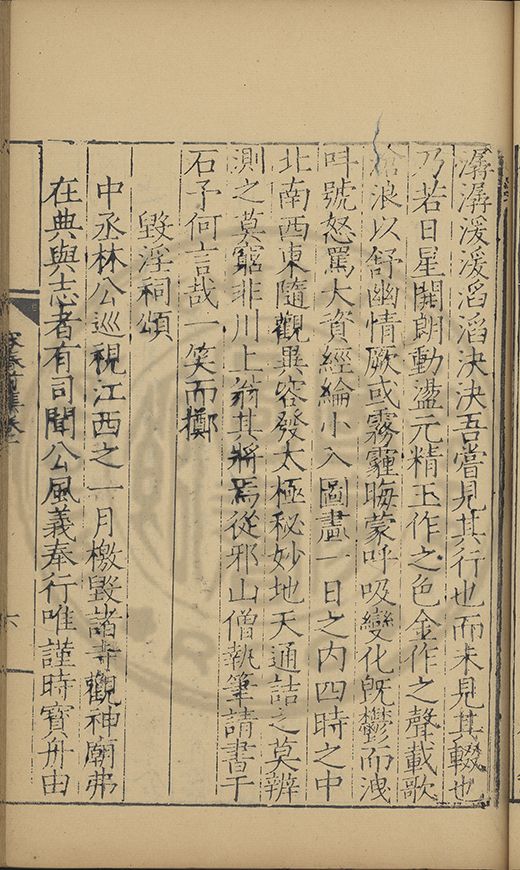 潺潺湲湲滔滔決決吾嘗見其行也而未見其輟也
乃若日星開朗動盪元精玉作之色金作之聲載歌
滄浪以舒幽情厥或霧霾晦蒙呼吸變化既鬱而洩
呌號怒罵大資經綸小入圖畫一日之內四時之中
北南西東隨觀異容發太極秘妙地天通詰之莫辨
測之莫窮非川上翁其將焉從邪山僧執筆請書于
石予何言哉一笑而擲
毀淫祠頌
中丞林公巡視江西之一月檄毀諸寺觀神廟弗
在典與志者有司聞公風義奉行唯謹時寶舟由
六